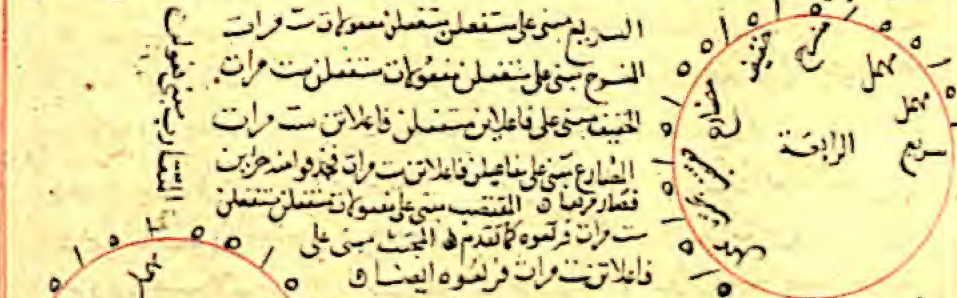 السريع مبنى على مستفعلن مستفعلن مفعولات ست مرات
المنسرح مبنى على مستفعلن مفعولات مستفعلن ست مرات
الخفيف مبنى على فاعلاتن مستفعلن فاعلاتن ست مرات
المضارع مبنى على مفاعيلن فاعلاتن ست مرات فحذفوا منه جزاين
المقتضب مبنى على مفعولات مستفعلن مستفعلن
ست مرات فربعوه كما تقدم المجتث مبنى على
فاعلاتن ست مرات فربعوه ايضا
المتقارب مبنى فعولن
الرابعة
سريع
مهمل
مهمل
منسرح
خفيف
مضارع